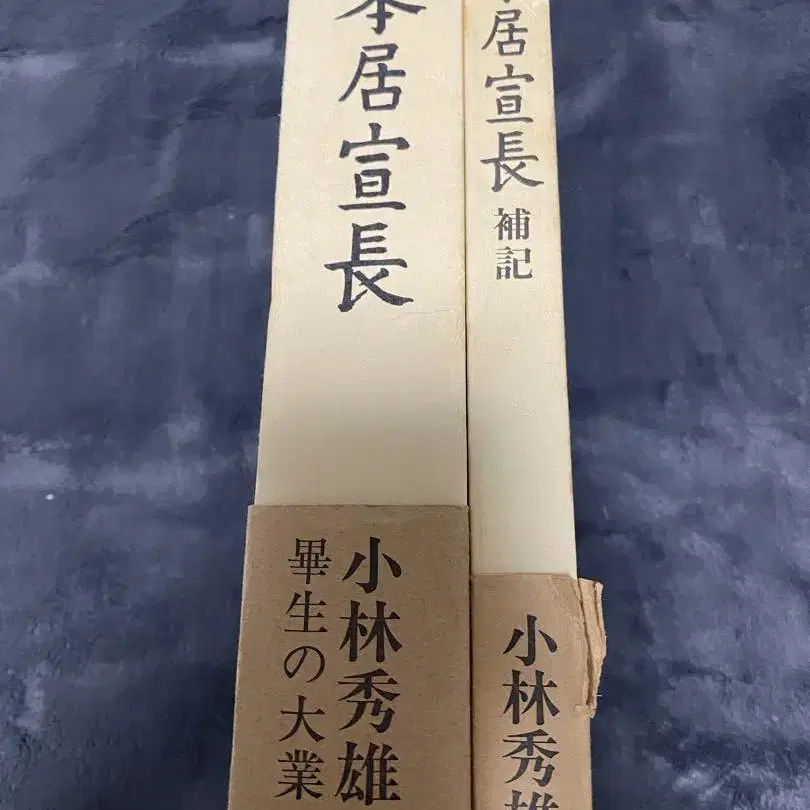 本居宣長
小林秀雄
畢生の大業
本居宣長 補記
小林秀雄